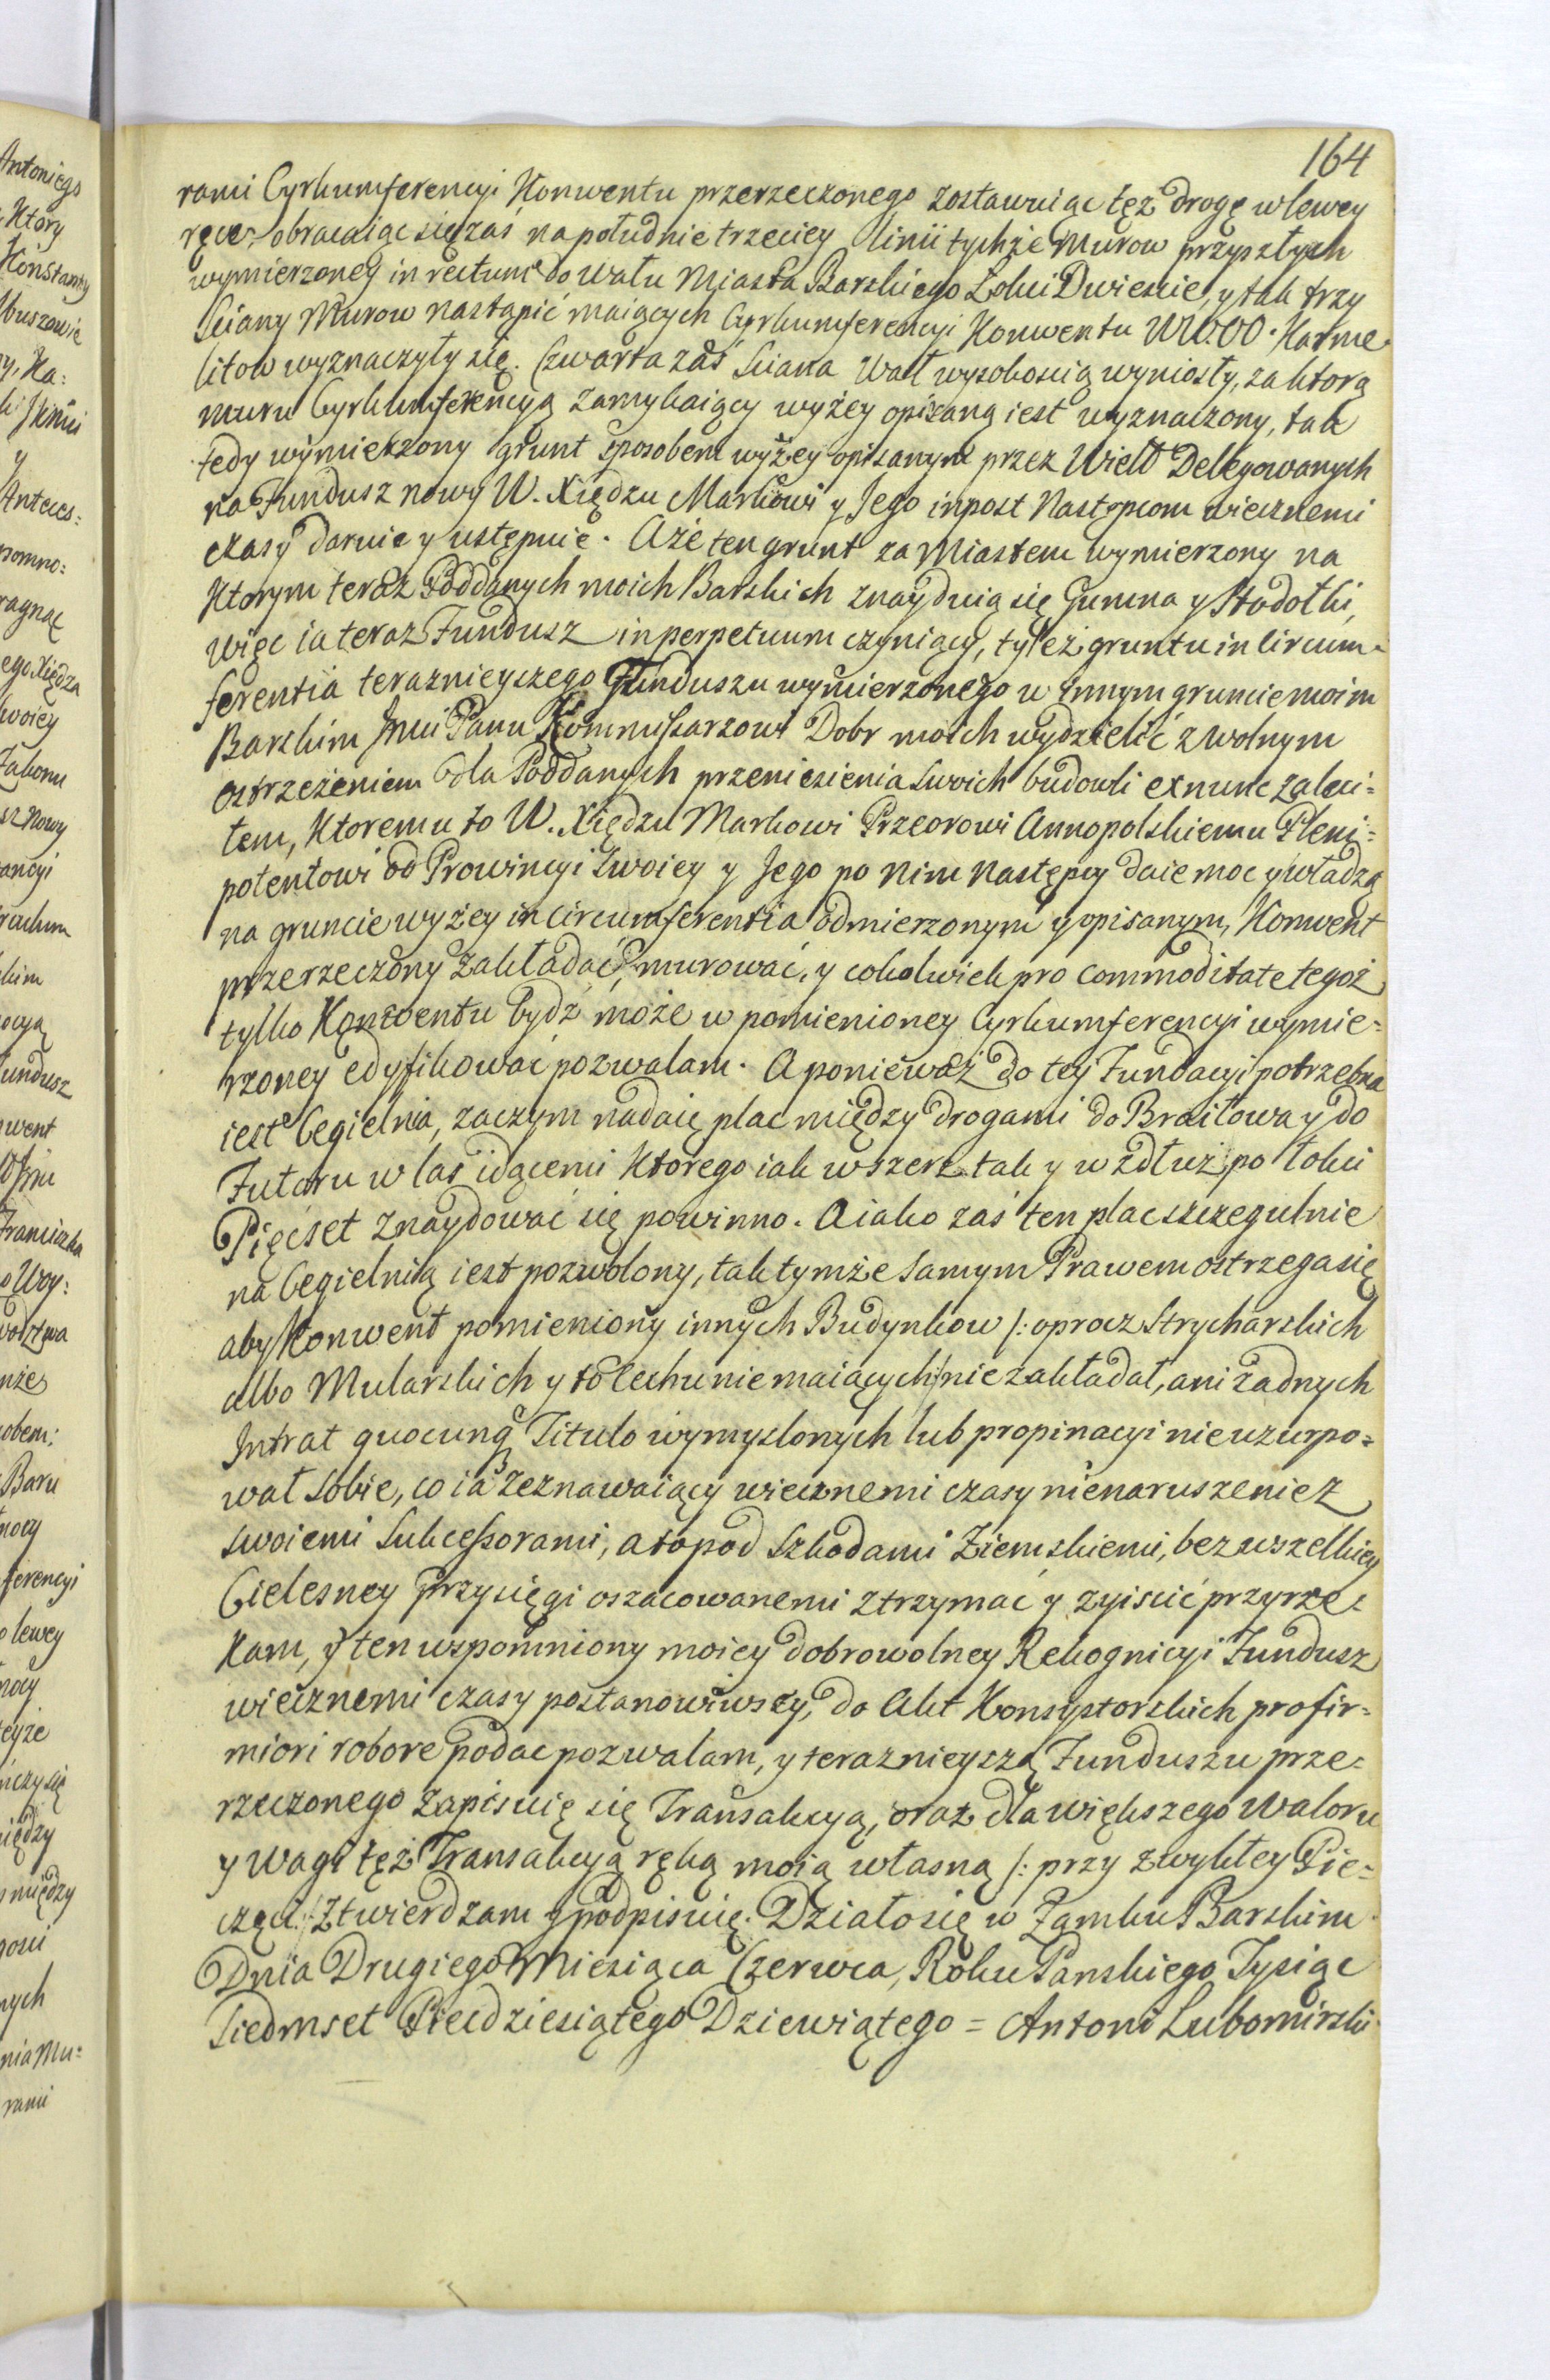 164
rami Cyrkumferencyi Konwentu przerzeczonego zostawuiąc tęż drogę w lewey
ręce, obracaiąc się zaś na południe trzeciey linii tychże Murow przyszłych
wymierzoney in rectum do wału Miasta Barskiego Łokci Dwieście, y tak trzy
Sciany Murow nastąpić maiących Cyrkumferencyi Konwentu WW.OO. Karme-
litow wyznaczyły się. Czwarta zaś Sciana Wał wysokoscią wyniosły, za ktorą
muru Cyrkumferencyą zamykaiący wyżey opisaną iest wyznaczony, tak
tedy wymierzony grunt sposobem wyżey opisanym przez Wielb Delegowanych
na Fundusz nowy W. Xiędzu Markowi y Jego inpost Następcom wiecznemi
czasy daruię y ustępuię. Aże ten grunt za Miastem wymierzony na
Ktorym teraz Poddanych moich Barskich znayduią się Gumna y Stodołki,
więc ia teraz Fundusz in perpetuum czyniący, tyleż gruntu in Circum-
ferentia teraznieyszego Funduszu wymierzonego w innym gruncie moim
Barskim Jmci Panu Kommissarzowi Dobr moich wydzielić z wolnym
ostrzeżeniem dla Poddanych przeniesienia swoich budowli exnunc zaleci-
łem, Ktoremu to W. Xiędzu Markowi Przeorowi Annopolskiemu Pleni=
potentowi od Prowincyi swoiey y Jego po Nim Następcy daie moc y władzą
na gruncie wyżey in Circumferentia odmierzonym y opisanym, Konwent
przerzeczony zakładać, murować, y cokolwiek pro commoditate tegoż
tylko Konwentu bydź może w pomienioney Cyrkumferencyi wymie=
rzoney edyfikować pozwalam. A ponieważ do tey Fundacyi potrzebna
iest Cegielnia, zaczym nadaię plac między drogami do Braiłowa y do
Futoru w las idącemi Ktorego iak wszerz tak y w zdłuż po łokci
Pięćset znaydować się powinno. A iako zaś ten plac szczegulnie
na Cegielnią iest pozwolony, tak tymże samym Prawem ostrzega się
aby Konwent pomieniony innych Budynkow /: oprocz Strycharskich
albo Mularskich y to Cechu nie maiących :/ nie zakładał, ani żadnych
Intrat quocunq Titulo wymyslonych lub propinacyi nie uzurpo=
wał sobie, co ia zeznawaiący wiecznemi czasy nienaruszenie z
swoiemi Sukcessorami, a to pod Szkodami Ziemskiemi, bez wszelkiey
Cielesney Przysięgi oszacowanemi ztrzymać y zyiscić przyrze=
kam, y ten wspomniony moiey dobrowolney Rekognicyi Fundusz
wiecznemi czasy postanowiwszy, do Akt Konsystorskich profir=
miori robore podac pozwalam, y teraznieyszą Funduszu prze=
rzeczonego zapisuię się Transakcyą, oraz dla większego waloru
y wagi tęż Transakcyą ręką moią własną /: przy zwykłey Pie=
częci :/ Ztwierdzam y podpisuię. Działo się w Zamku Barskim
Dnia Drugiego Miesiąca Czerwca, Roku Panskiego Tysiąc
Siedmset Piecdziesiątego Dziewiątego = Antoni Lubomirski